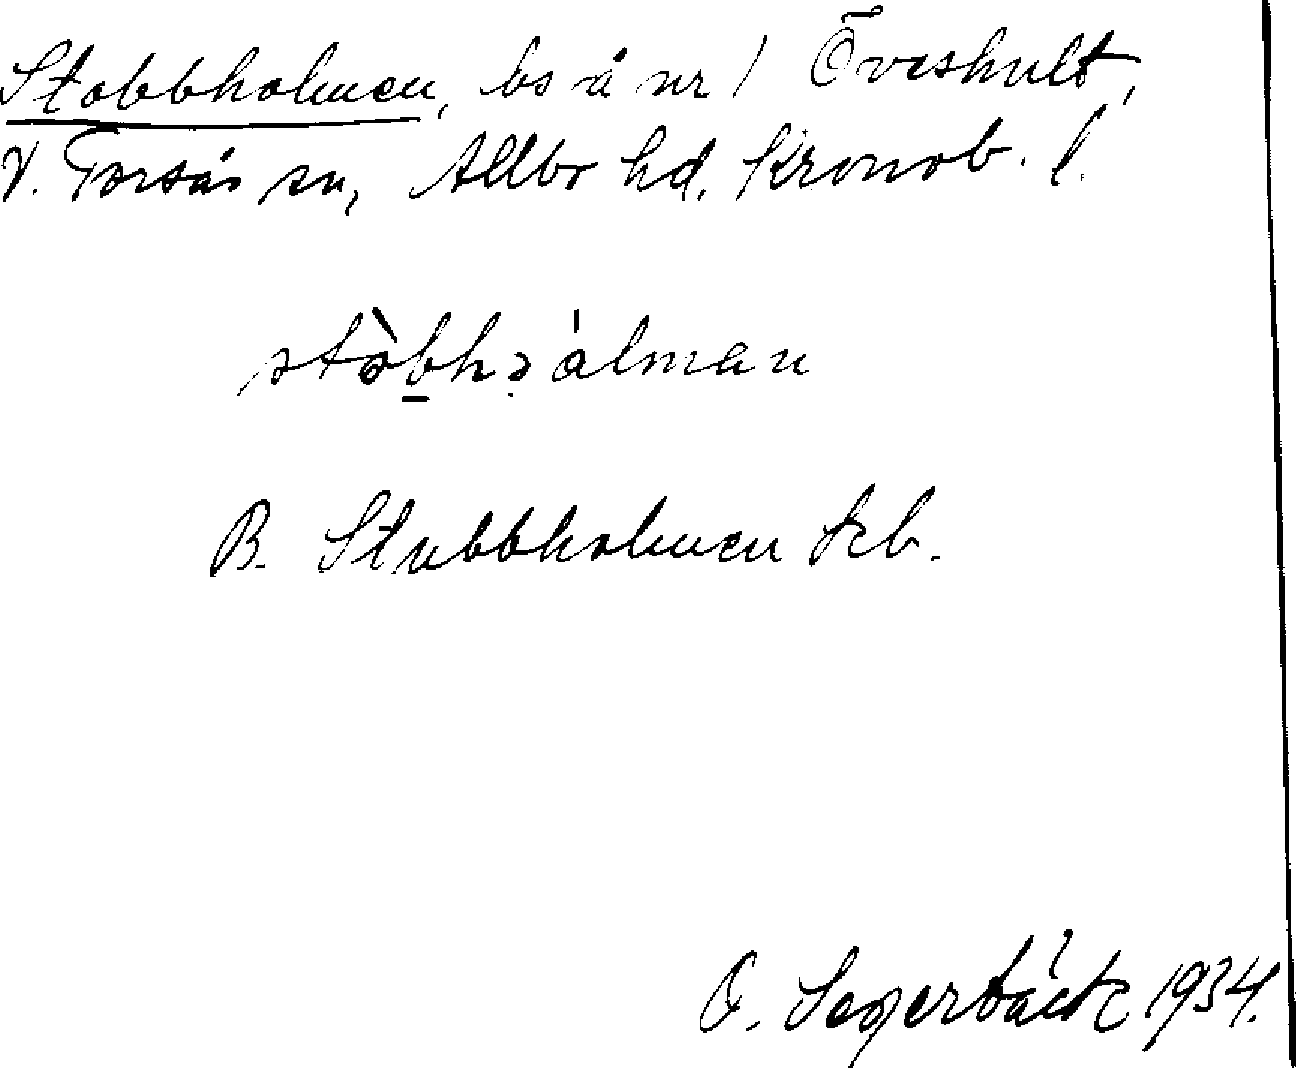 Stobbholmen, bs å nr 1 Öveshult,
V. Torsås sn, Allbo hd. Kronob. l.
B. Stubbholmen Jrb.
O. Segerbäck 1934.